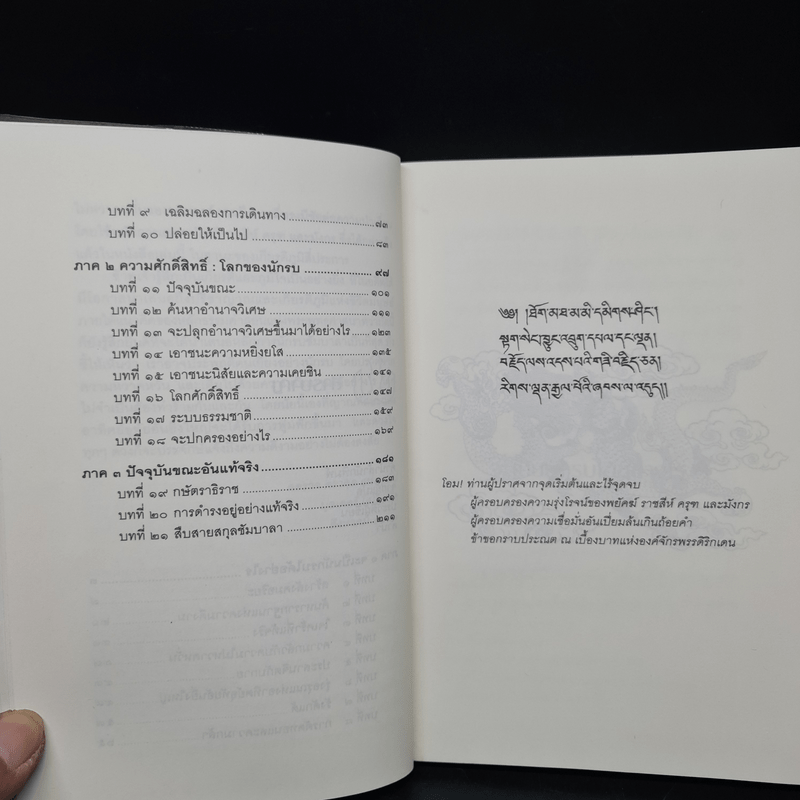 บทที่ ๙ เฉลิมฉลองการเดินทาง ๗๓
บทที่ ๑๐ ปล่อยให้เป็นไป ๘๓
ภาค ๒ ความศักดิ์สิทธิ์ : โลกของนักรบ ๙๗
บทที่ ๑๑ ปัจจุบันขณะ ๑๐๑
บทที่ ๑๒ ค้นหาอำนาจวิเศษ ๑๑๑
บทที่ ๑๓ จะปลุกอำนาจวิเศษขึ้นมาได้อย่างไร ๑๒๓
บทที่ ๑๔ เอาชนะความหยิ่งยโส ๑๓๕
บทที่ ๑๕ เอาชนะนิสัยและความเคยชิน ๑๔๑
บทที่ ๑๖ โลกศักดิ์สิทธิ์ ๑๔๗
บทที่ ๑๗ ระบบธรรมชาติ ๑๕๙
บทที่ ๑๘ จะปกครองอย่างไร ๑๖๙
ภาค ๓ ปัจจุบันขณะอันแท้จริง ๑๘๑
บทที่ ๑๙ กษัตราธิราช ๑๘๓
บทที่ ๒๐ การดำรงอยู่อย่างแท้จริง ๑๙๑
บทที่ ๒๑ สืบสายสกุลชัมบาลา ๒๑๑
༄༅། །ཐོག་མ་ཐ་མ་མི་དམིགས་ཤིང་།
སྟག་སེང་ཁྱུང་འབྲུག་དཔལ་དང་ལྡན།
བརྗོད་ལས་འདས་པའི་གཟི་བརྗིད་ཅན།
རིགས་ལྡན་རྒྱལ་པོའི་ཞབས་ལ་འདུད།།
โอม! ท่านผู้ปราศจากจุดเริ่มต้นและไร้จุดจบ
ผู้ครอบครองความรุ่งโรจน์ของพยัคฆ์ ราชสีห์ ครุฑ และมังกร
ผู้ครอบครองความเชื่อมั่นอันเปี่ยมล้นเกินถ้อยคำ
ข้าขอกราบประณต ณ เบื้องบาทแห่งองค์จักรพรรดิริกเดน